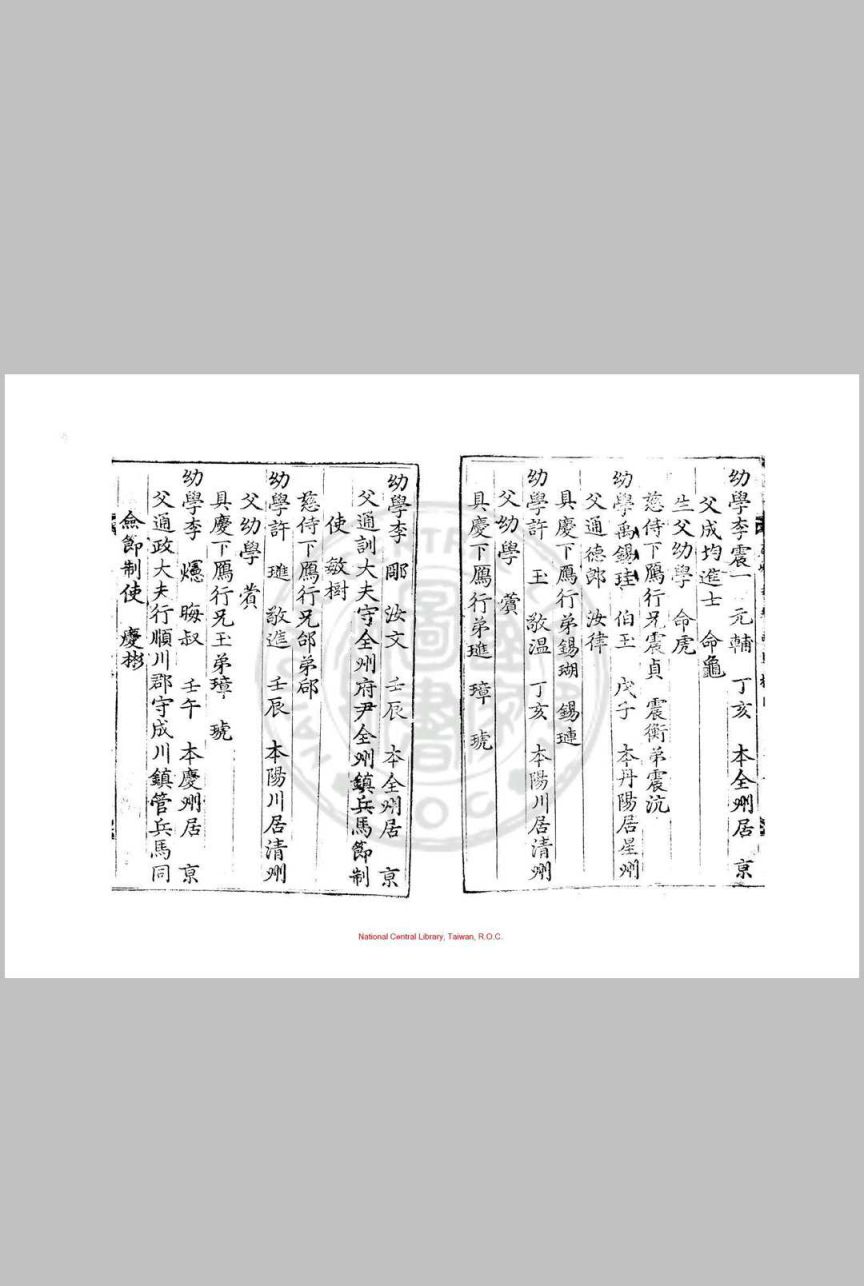 幼學李震一 元輔 丁亥 本全州居 京
父成均進士 命龜
生父幼學 命虎
慈侍下鴈行兄震貞 震衡弟震沆
幼學禹錫珪 伯玉 戊子 本丹陽居星州
父通德郎 汝律
具慶下鴈行弟錫瑚 錫璉
幼學許 玉 敬温 丁亥 本陽川居清州
父幼學 蕡
具慶下鴈行弟璡 璋 琥
幼學李 彫 汝文 壬辰 本全州居 京
父通訓大夫守全州府尹全州鎮兵馬節制
使 敏樹
慈侍下鴈行兄郃弟邸
幼學許 璡 敬進 壬辰 本陽川居清州
父幼學 蕡
具慶下鴈行兄玉弟璋 琥
幼學李 𢣷 晦叔 壬午 本慶州居 京
父通政大夫行順川郡守成川鎮管兵馬同
僉節制使 慶彬
National Central Library, Taiwan, R.O.C.